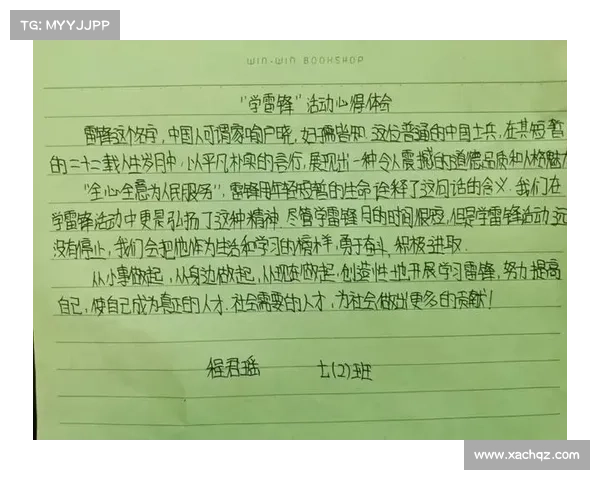 TG: MYYJJPP
WIN-WIN BOOKSHOP
"学雷锋"活动心得体会
雷锋这个名字,中国人可谓家喻户晓,妇孺皆知.这位普通的中国士兵,在其短暂
的二十二载人生岁月中,以平凡朴实的言行,展现出一种令人震撼的道德品质和人格魅力
"全心全意为人民服务",雷锋用年轻短暂的生命诠释了这句话的含义.我们在
学雷锋活动中更是弘扬了这种精神.尽管学雷锋月的时间很短,但是学雷锋活动远
没有停止,我们会把他作为生活和学习的榜样,勇于奋斗,积极进取.
从小事做起,从身边做起,从现在做起.创造性地开展学习雷锋,努力提高
自己,使自己成为真正的人才.社会需要的人才,为社会做出更多的贡献!
程君瑶 七(2)班
www.xachqz.com